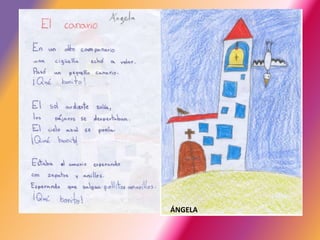 El canario
Ángela
En un alto campanario
una cigüeña echó a volar.
Pasó un pequeño canario.
¡Qué bonito!
El sol ardiente salía,
los pájaros se despertaban.
El cielo azul se ponía
¡Qué bonito!
Estaba el canario esperando
con zapatos y anillos.
Esperando que salgan pollitos amarillos.
¡Qué bonito!
ÁNGELA